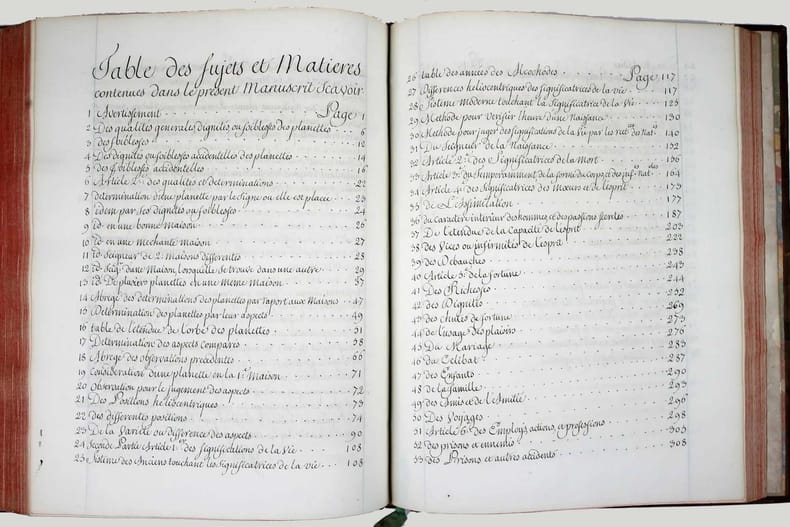 Table des Sujets et Matieres
contenues dans le present Manuscrit Scavoir
1 Avertissement Page 1
2 Des qualités generales dignités ou foiblesses des planettes 6
3 des foiblesses 12
4 Des dignités ou foiblesses accidentelles des planettes 14
5 des foiblesses accidentelles 16
6 Article 2e. des qualités et determinations 22
7 determination d'une planette par le signe ou elle est placée 23
8 idem par ses dignités ou foiblesses 24
9 id en une bonne maison 26
10 id en une mechante maison 27
11 id Seigneur de 2 maisons differentes 28
12 id Seigr. d'une Maison, lorsqu'elle se trouve dans une autre 29
13 id. De plusiers planettes en une meme Maison 37
14 Abregé des determinations des planettes par raport aux Maisons 47
15 Determination des planettes par leurs aspects 49
16 table de l'etendue de l'orbe des planettes 51
17 Determination des aspects comparés 58
18 Abregé des observations precedentes 66
19 Consideration d'une planette en la 1e. Maison 71
20 observation pour le jugement des aspects 72
21 Des Positions heliocentriques 73
22 des differentes positions 74
23 De la Varieté ou difference des aspects 90
24 Seconde Partie Article 1er. des significations de la Vie 108
25 Sistème des Anciens touchant les significatrices de la vie 108
26 table des années des Alcochodes Page 117
27 Differences heliocentriques des significatrices de la vie 117
28 Sistème moderne touchant la significatrice de la Vie 125
29 Methode pour Verifier l'heure d'une Naissance 130
30 Methode pour juger des significations de la Vie par les des Nat. 140
31 Du Seigneur de la Naissance 152
32 Article 2e. des Significatrices de la mort 156
33 Article 3e. du temperamment de la forme du corps et des Nat. 164
34 Article 4e. des Significatrices des Mœurs et de l'esprit 173
35 de L'Assimilation 177
36 du caractere interieur des hommes et des passions secretes 187
37 De l'etendue de la Capacité de l'esprit 203
38 des Vices ou infirmités de l'esprit 222
39 des Debauches 238
40 Article 5e. de la fortune 243
41 Des Richesses 244
42 des Dignités 252
43 des chutes de fortune 269
44 de l'usage des plaisirs 273
45 Du Mariage 276
46 du Celibat 283
47 des Enfants 287
48 de la famille 290
49 des Amis et de l'Amitié 293
50 Des Voyages 296
51 Article 6e. des Employs, actions, et professions 298
52 des prisons et ennemis 303
53 des Prisons et autres accidents 308